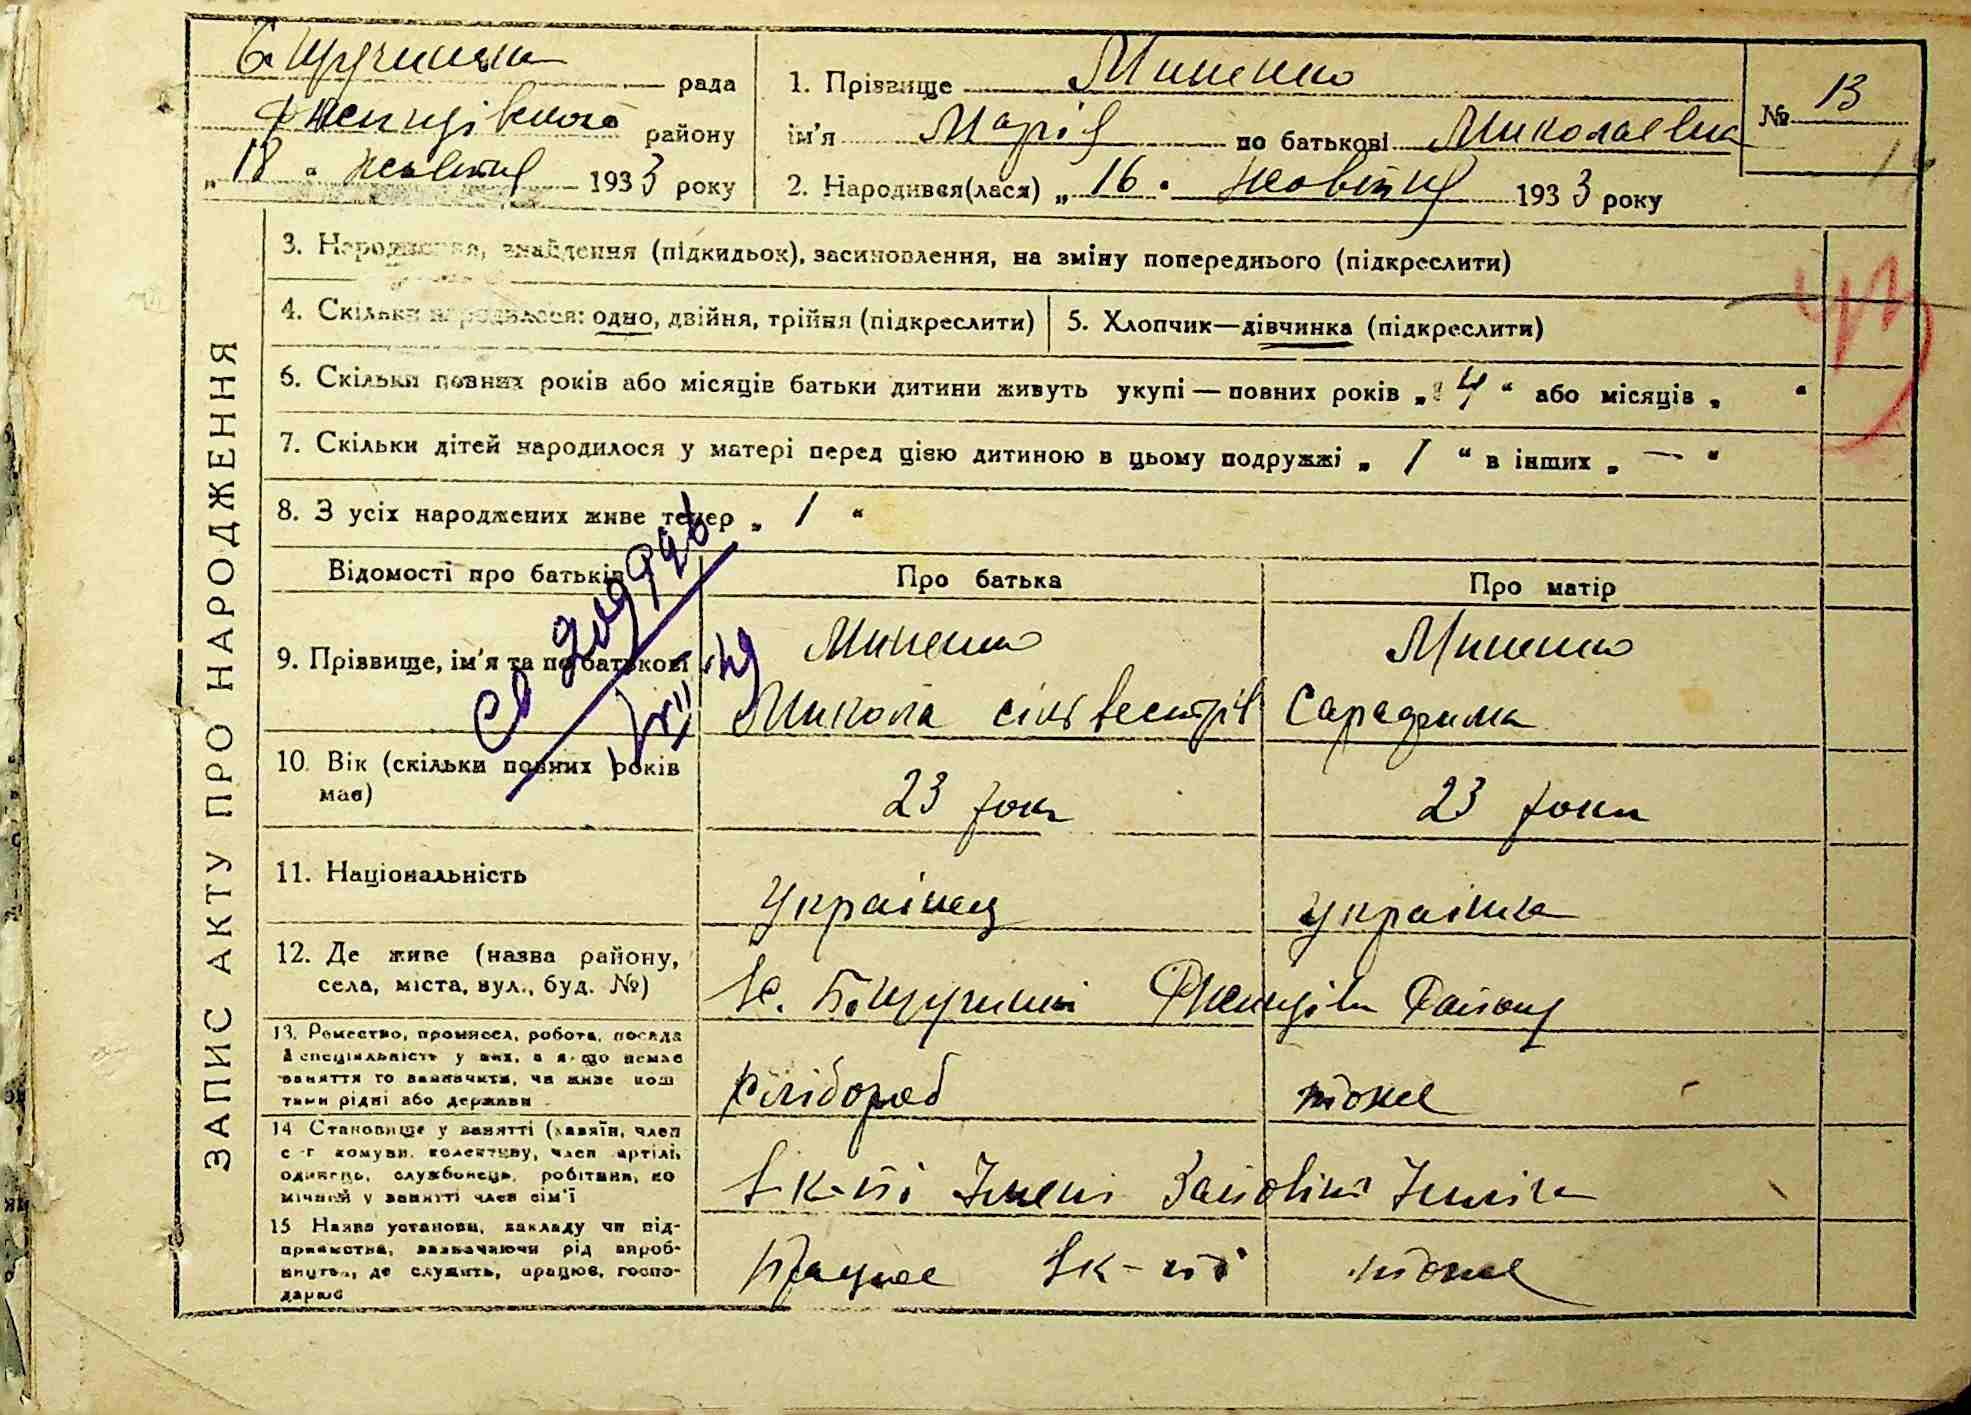 рада
району
„18“ жовтня 1933 року
1. Прізвище Миненко
ім'я Марія по батькові Миколаевна
№ 13
2. Народився(лася) „16“ жовтня 1933 року
ЗАПИС АКТУ ПРО НАРОДЖЕННЯ
3. Народження, знайдення (підкидьок), засиновлення, на зміну попереднього (підкреслити)
4. Скільки народилося: одно, двійня, трійня (підкреслити)
5. Хлопчик—дівчинка (підкреслити)
6. Скільки повних років або місяців батьки дитини живуть укупі — повних років „4“ або місяців „ “
7. Скільки дітей народилося у матері перед цією дитиною в цьому подружжі „1“ в інших „—“
8. З усіх народжених живе тепер „1“
Відомості про батьків
Про батька
Про матір
9. Прізвище, ім'я та по батькові
Миненко
Миненко
Микола сільвестрів
10. Вік (скільки повних років
має)
23 роки
23 роки
11. Національність
Українец
Українка
12. Де живе (назва району,
села, міста, вул., буд. №)
13. Ремество, промисел, робота, посада
й спеціяльність у них, а якщо немає
заняття то зазначити, чи живе кош
тами рідні або держави
хлібороб
тоже
14 Становище у занятті (хазяїн, член
с-г комуни, колективу, член артілі,
одинець, службонець, робітник, по
мічний у занятті член сім'ї
15 Назва установи, закладу чи під-
приємства, зазначаючи рід вироб-
ництва, де служить, працює, госпо-
дарює
Працює
тоже